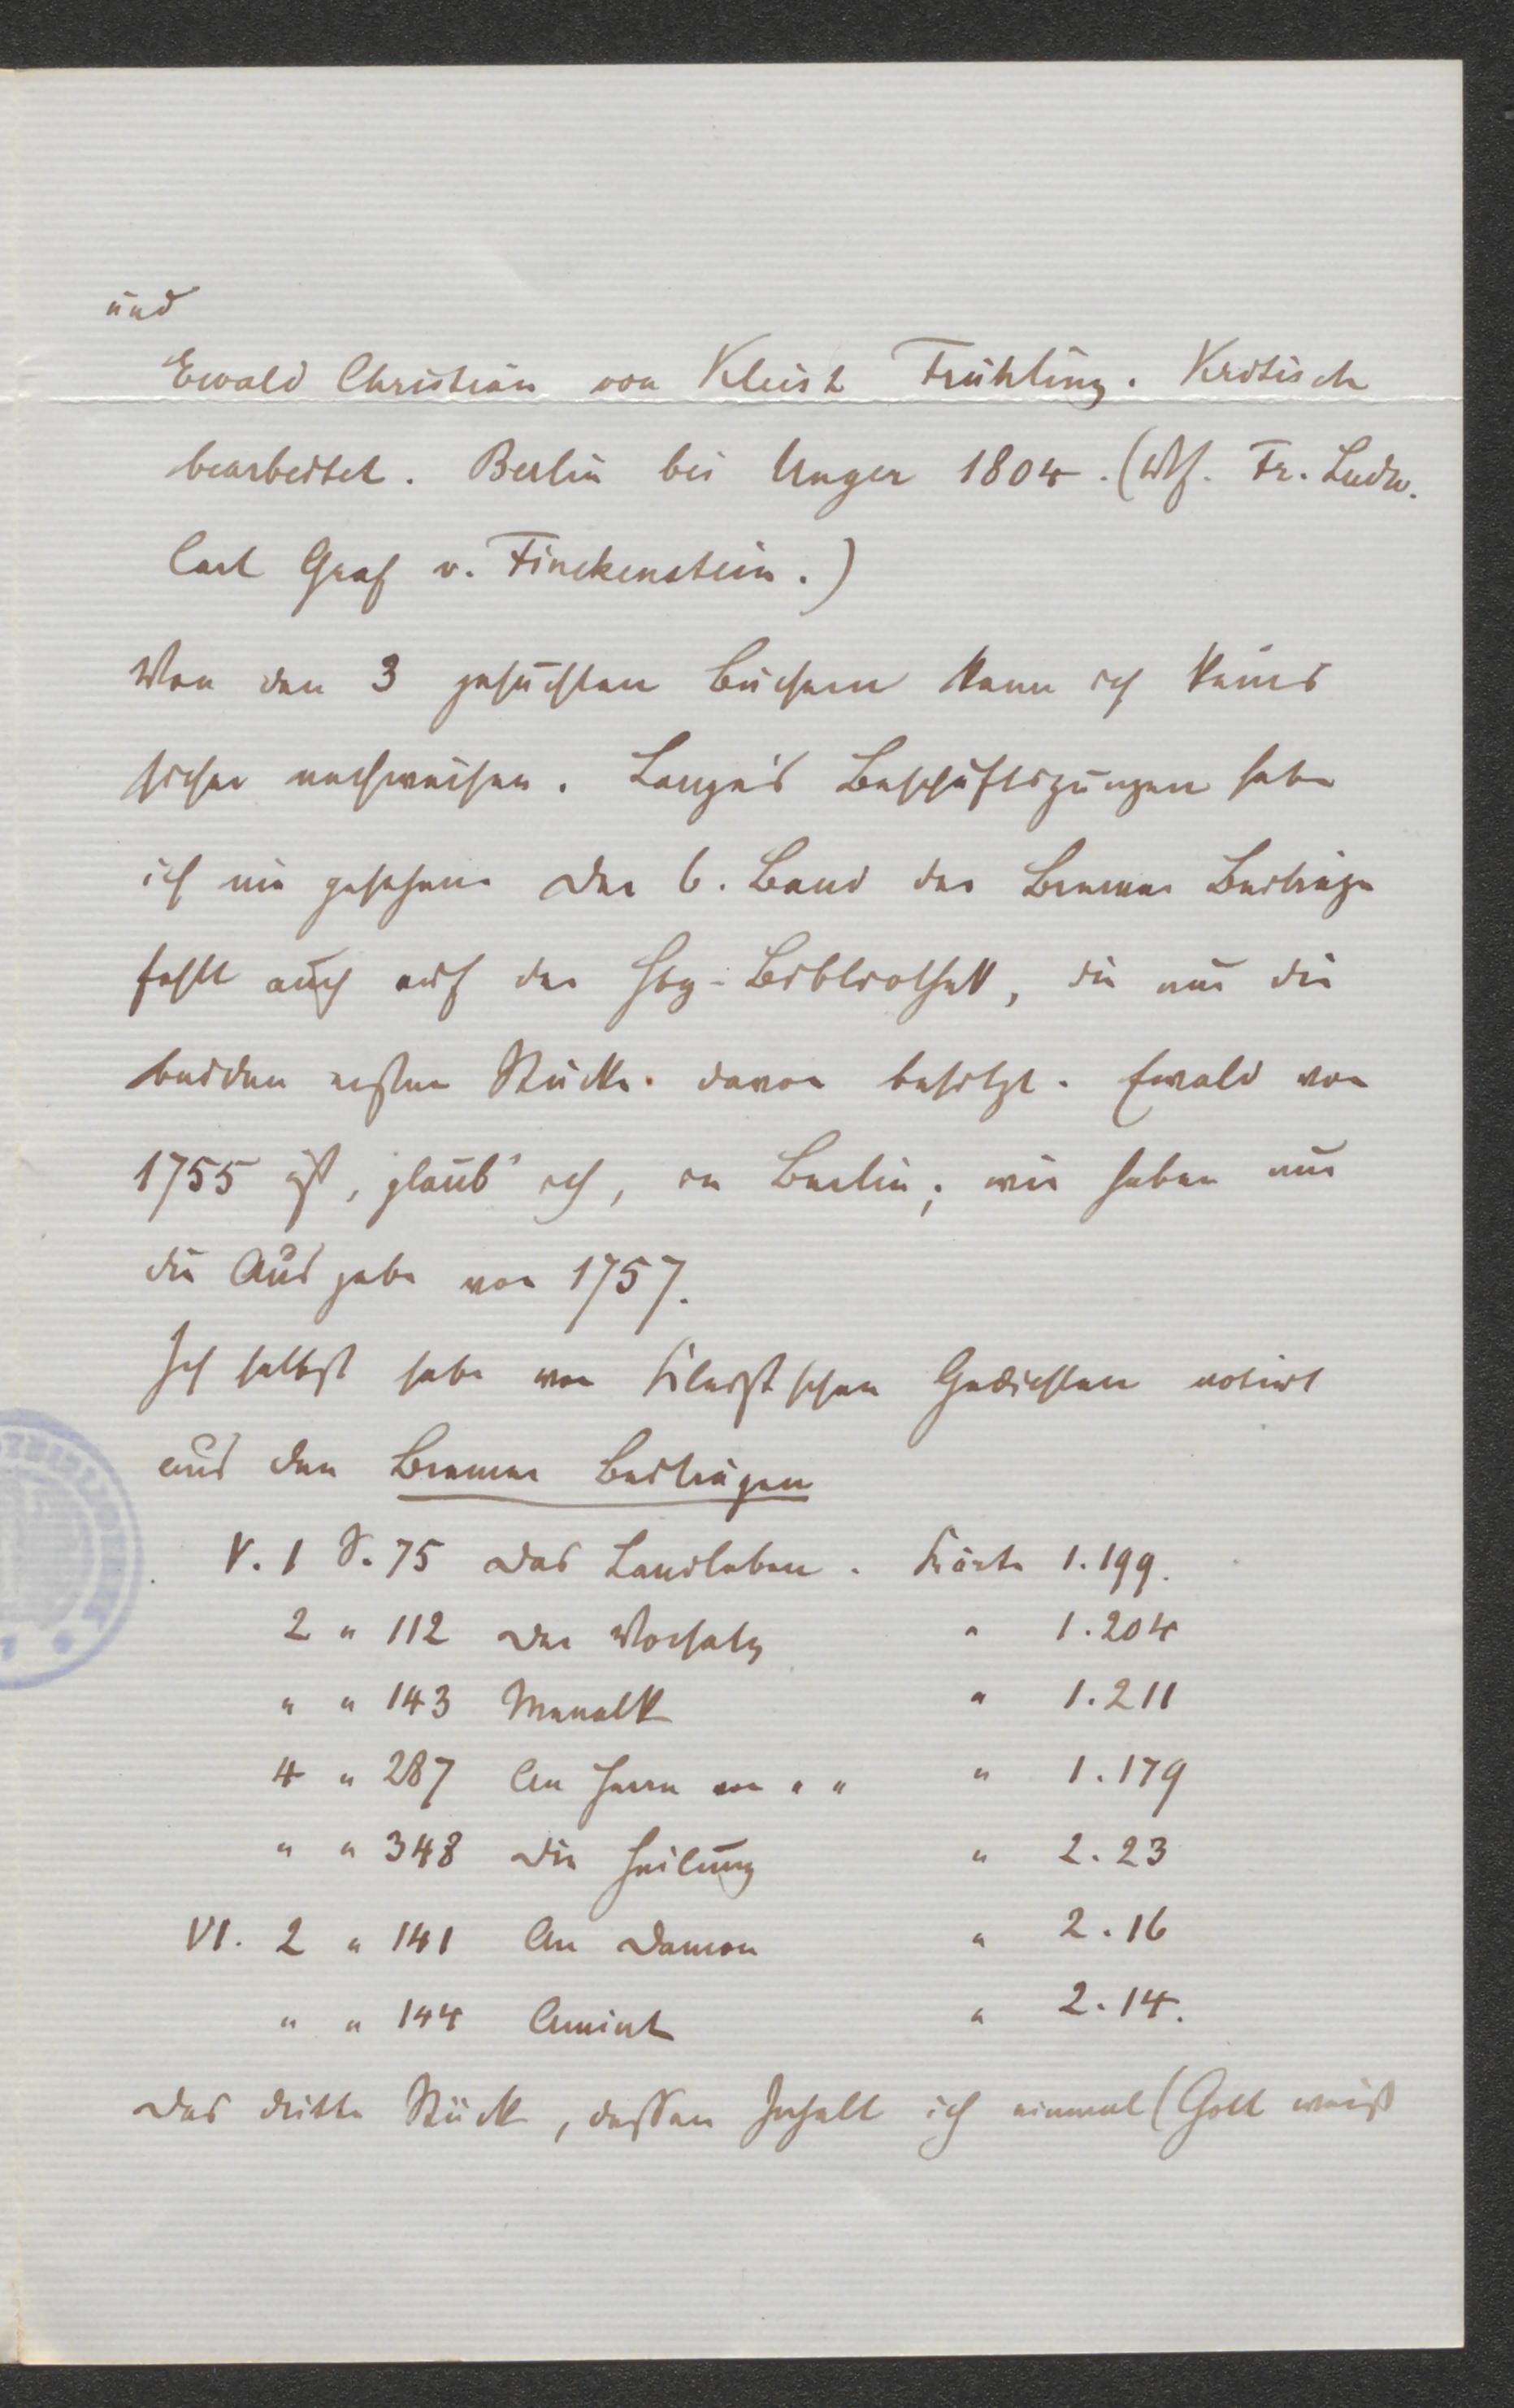 und
Ewald Christian von Kleist Frühling. Kritisch
bearbeitet. Berlin bei Unger 1804. (Vf. Fr. Ludw.
Carl Graf v. Finckenstein.)
Von den 3 gesuchten Büchern kann ich keins
sicher nachweisen. Lange's Beschäftigungen habe
ich nie gesehen. Der 6. Band der Bremer Beiträge
fehlt auch auf der Hbg-Bibliothek, die nur die
beiden ersten Stücke davon besitzt. Ewald von
1755 ist, glaub' ich, in Berlin; wir haben nur
die Ausgabe von 1757.
Ich selbst habe von Kleistschen Gedichten notirt
aus den Bremer Beiträgen
V. 1 S. 75 Das Landleben. Körte 1.199.
2 " 112 Der Vorsatz " 1.204
" " 143 Menalk " 1.211
4 " 287 An Herrn von " " " 1.179
" " 348 Die Heilung " 2.23
VI. 2 " 141 An Damon " 2.16
" " 144 Amint " 2.14.
Das dritte Stück, dessen Inhalt ich einmal (Gott weiß